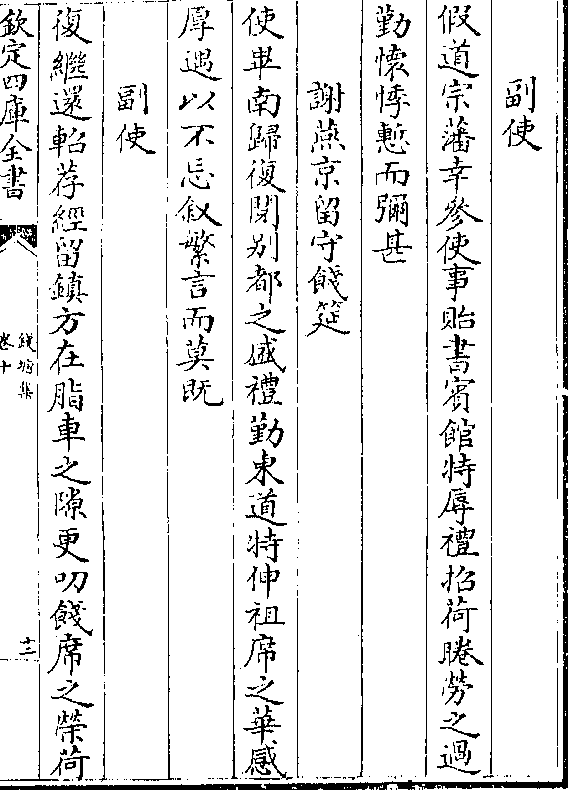 副使
假道宗藩幸參使事貽書賓館特辱禮招荷睠勞之過
勤懷悸慙而彌甚
謝燕京留守餞筵
使畢南歸復閱别都之盛禮勤東道特伸祖席之華感
厚遇以不忘叙繁言而莫既
副使
復繼還軺荐經留鎮方在脂車之隙更叨餞席之榮荷
欽定四庫全書
錢塘集
卷十
十二